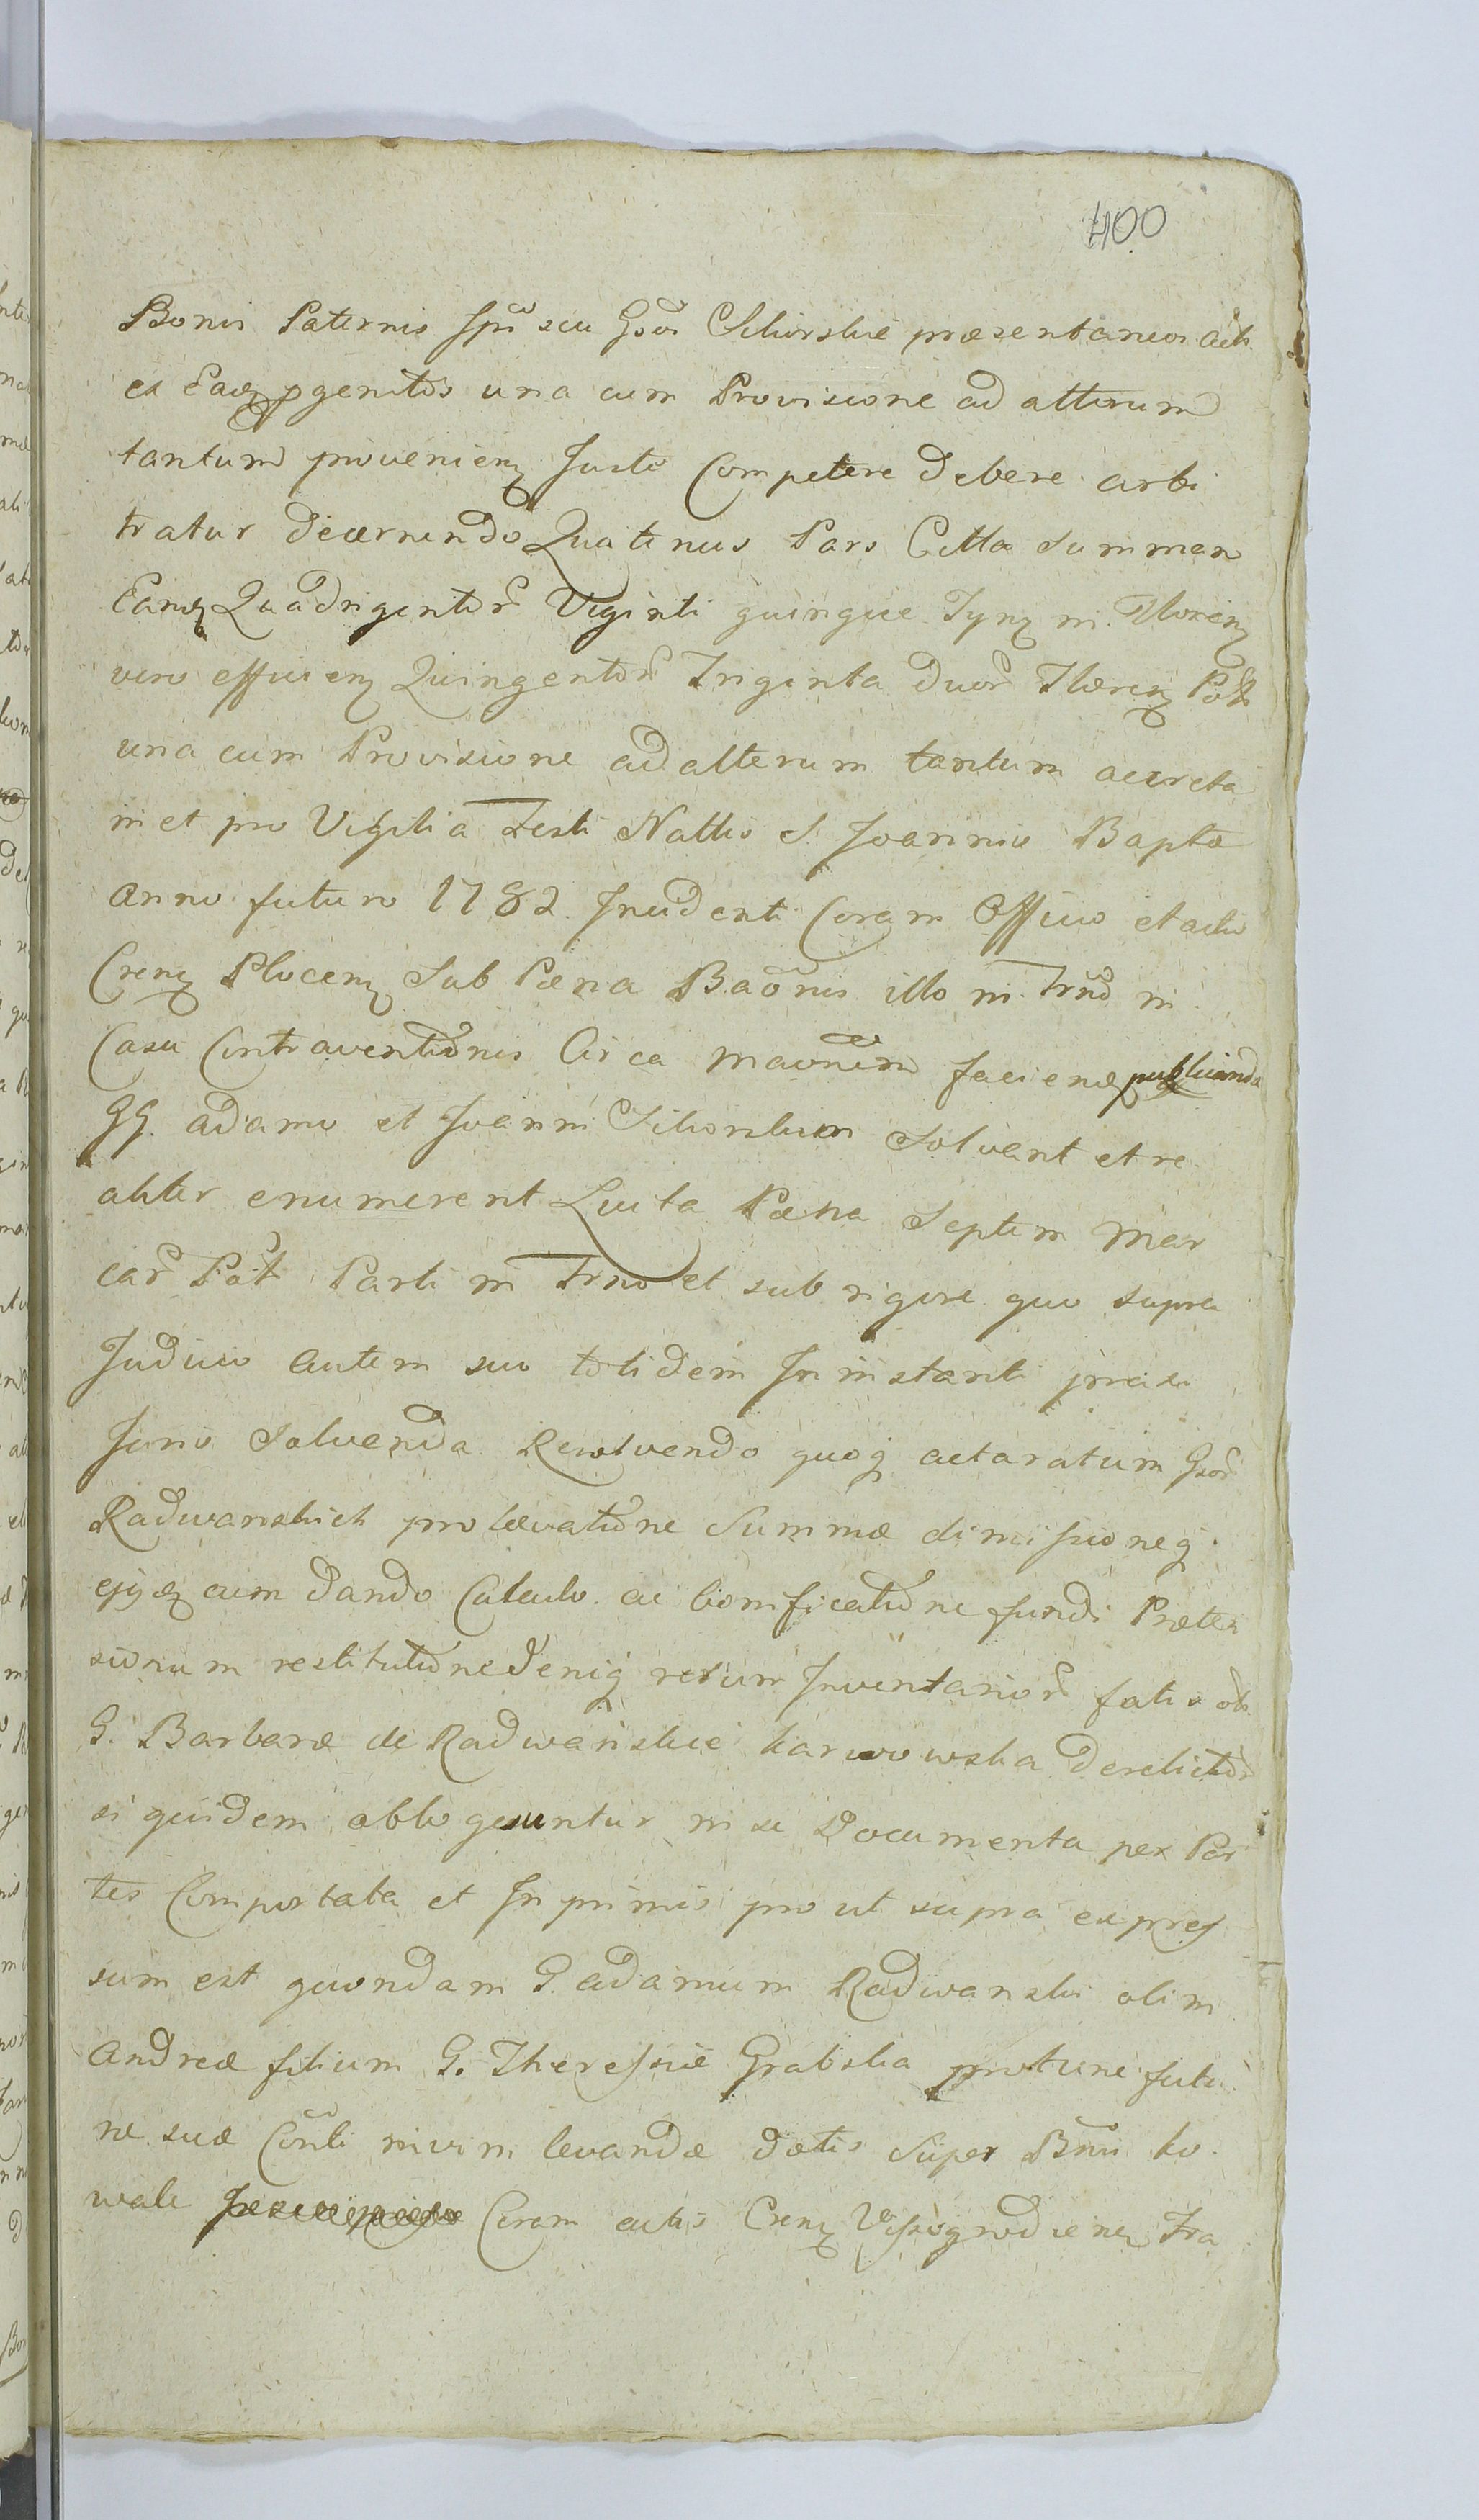 400
Bonis Paternis Ipi seu Gsor Sikorskie præsentaneor act
ex Eadq pgenitos una cum Provisione ad alterum
tantum provenienq Juste Competere debere arbi
tratur decernendo Quatenus Pars Citta summam
Eamq Quadrigentor Viginti quinque Tynq in Florenq
vero efficienq Quingentor Triginta duor Florenq Pol
una cum Provisione ad alterum tantum accreta
in et pro Vigilia Festi Nattis S. Joannis Baptæ
Anno futuro 1782. Incidenti Coram Officio et actis
Crenq Plocenq Sub Pæna Baonis illo in Trno in
Casu Contraventionis Circa maonem facienq publicanda
GG. Adamo et Joanni Sikorskim solvant et re
aliter enumerent Luita Pæna Septem Mar
car Pol Parti in Trno et sub rigore quo supra
Judicio autem suo totidem In instanti præcise
Juris Solvenda Resolvendo quoq actoratum Gsor
Radwanskich pro levatione Summæ dimissioneq
ejusq cum dando Calculo ac bonificatione fundi Præten
sionum restitutione deniq rerum Inventarior fatis ob
G. Barbaræ de Radwanskie Karwowska derelictor
siquidem obloquuntur in se Documenta per Par
tes Comportata et In primis pro ut supra expres
sum est quondam G. Adamum Radwanski olim
Andreæ filium G. Theressiæ Grabska pro tunc futu
ræ suæ Conti in vim levandæ dotis Super Bnis Ko
wale Coram actis Crenq Vissogrodienq Tra